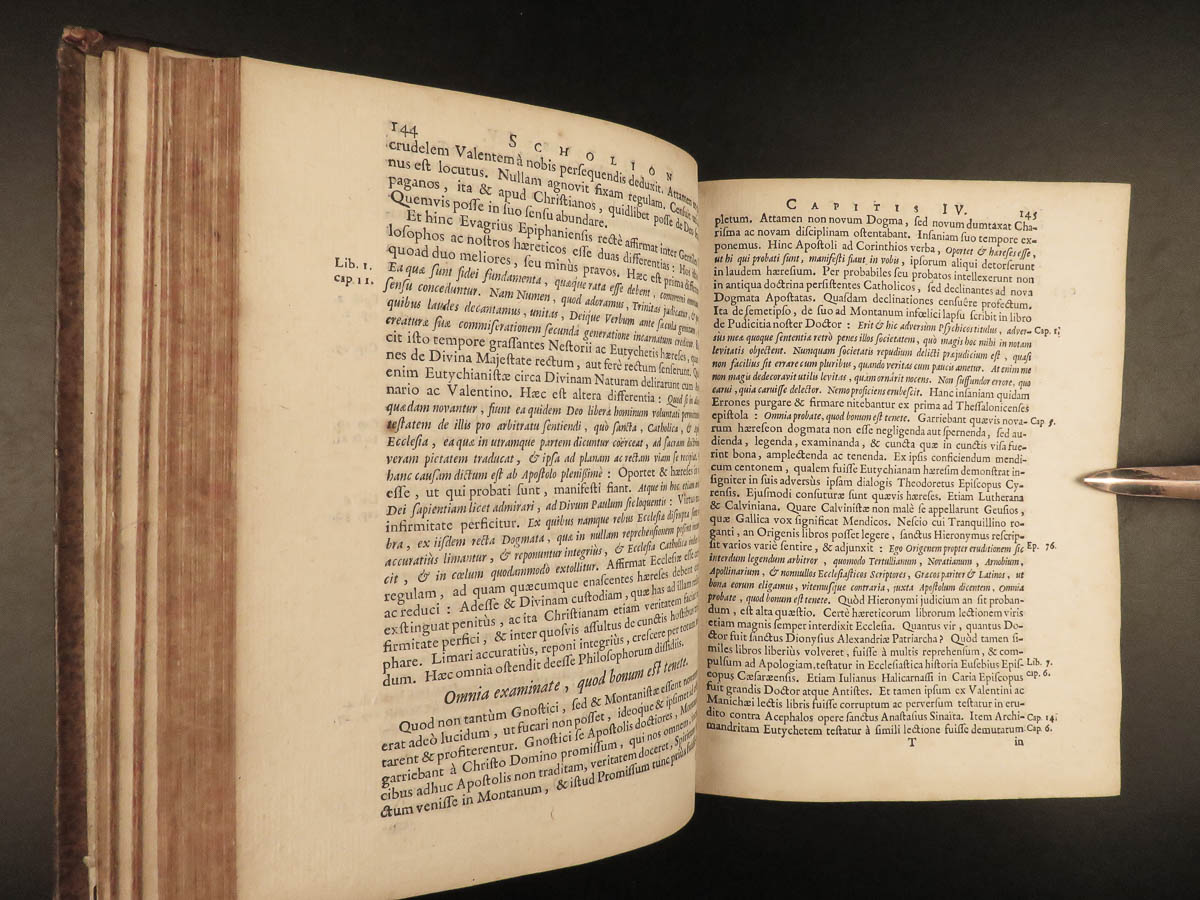 144 SCHOLION
crudelem Valentem à nobis persequendis deduxit. Attamen
nus est locutus. Nullam agnovit fixam regulam. Censuit
paganos, ita & apud Christianos, quidlibet posse de Deo
Quemvis posse in suo sensu abundare.
Et hinc Evagrius Epiphaniensis rectè affirmat inter Gentilium
losophos ac nostros hæreticos esse duas differentias: Hos
quoad duo meliores, seu minùs pravos. Hæc est prima
Lib. 1.
Ea quæ sunt fidei fundamenta, quæque rata esse debent, communi omnium
cap. 11.
sensu conceduntur. Nam Numen, quod adoramus, Trinitas judicatur,
quibus laudes decantamus, unitas, Deique Verbum ante sæcula genitum
creaturæ suæ commiserationem secundâ generatione incarnatum
cit isto tempore grassantes Nestorii ac Eutychetis hæreses,
nes de Divina Majestate rectum, aut ferè rectum senserunt.
enim Eutychianistæ circa Divinam Naturam delirarunt cum
nario ac Valentino. Hæc est altera differentia: Quod si in
quædam novantur, fiunt ea quidem Deo liberâ hominum voluntati
testatem de illis pro arbitratu sentiendi, quò sancta, Catholica, &
Ecclesia, ea quæ in utramque partem dicuntur coërceat, ad sacram
veram pietatem traducat, & ipsa ad planam ac rectam viam se recipiat.
hanc causam dictum est ab Apostolo plenissimè: Oportet & hæreses
esse, ut qui probati sunt, manifesti fiant. Atque in hoc, etiam
Dei sapientiam licet admirari, ad Divum Paulum sic loquentis: Virtus
infirmitate perficitur. Ex quibus namque rebus Ecclesia disrupta
bra, ex iisdem recta Dogmata, quæ in nullam reprehensionem possint
accuratiùs limantur, & reponuntur integriùs, & Ecclesia Catholica
cit, & in cœlum quodammodo extollitur. Affirmat Ecclesiæ esse
regulam, ad quam quæcumque enascentes hæreses debent
ac reduci: Adesse & Divinam custodiam, quæ has ad illam
exstinguat penitùs, ac ita Christianam etiam veritatem faciat
firmitate perfici, & inter quosvis assultus de cunctis hostibus
phare. Limari accuratiùs, reponi integriùs, crescere per totum
dum. Hæc omnia ostendit deesse Philosophorum dissidiis.
Omnia examinate, quod bonum est tenete.
Quod non tantùm Gnostici, sed & Montanistæ essent
erat adeò lucidum, ut fucari non posset, ideoque & ipsimet
tarent & profiterentur. Gnostici se Apostolis doctiores,
garriebant à Christo Domino promissum, qui nos omnem,
cibus adhuc Apostolis non traditam, veritatem doceret,
ctum venisse in Montanum, & istud Promissum tunc primò
CAPITIS IV. 145
pletum. Attamen non novum Dogma, sed novum dumtaxat Cha-
risma ac novam disciplinam ostentabant. Insaniam suo tempore ex-
ponemus. Hinc Apostoli ad Corinthios verba, Oportet & hæreses esse,
ut hi qui probati sunt, manifesti fiant in vobis, ipsorum aliqui detorserunt
in laudem hæresium. Per probabiles seu probatos intellexerunt non
in antiqua doctrina persistentes Catholicos, sed declinantes ad nova
Dogmata Apostatas. Quasdam declinationes censuêre profectum.
Ita de semetipso, de suo ad Montanum infœlici lapsu scribit in libro
de Pudicitia noster Doctor: Erit & hic adversùm Psychicos titulus, adver-
Cap. 1.
sus meæ quoque sententia retrò penes illos societatem, quò magis hoc mihi in notam
levitatis objectent. Numquam societatis repudium delicti præjudicium est, quasi
non facilius sit errare cum pluribus, quando veritas cum paucis ametur. At enim me
non magis dedecoravit utilis levitas, quàm ornârit nocens. Non suffundor errore, quo
carui, quia caruisse delector. Nemo proficiens erubescit. Hanc insaniam quidam
Errones purgare & firmare nitebantur ex prima ad Thessalonicenses
epistola: Omnia probate, quod bonum est tenete. Garriebant quævis nova-
Cap. 5.
rum hæreseon dogmata non esse negligenda aut spernenda, sed au-
dienda, legenda, examinanda, & cuncta quæ in cunctis visa fue-
rint bona, amplectenda ac tenenda. Ex ipsis conficiendum mendi-
cum centonem, qualem fuisse Eutychianam hæresim demonstrat in-
signiter in suis adversùs ipsam dialogis Theodoretus Episcopus Cy-
rensis. Ejusmodi consuturæ sunt quævis hæreses. Etiam Lutherana
& Calviniana. Quare Calvinistæ non malè se appellarunt Geusios,
quæ Gallica vox significat Mendicos. Nescio cui Tranquillino ro-
ganti, an Origenis libros posset legere, sanctus Hieronymus rescrip-
sit varios varie sentire, & adjunxit: Ego Origenem propter eruditionem sic
Ep. 76.
interdum legendum arbitror, quomodo Tertullianum, Novatianum, Arnobium,
Apollinarium, & nonnullos Ecclesiasticos Scriptores, Græcos pariter & Latinos, ut
bona eorum eligamus, vitemusque contraria, juxta Apostolum dicentem, Omnia
probate, quod bonum est tenete. Quòd Hieronymi judicium an sit proban-
dum, est alta quæstio. Certè hæreticorum librorum lectionem viris
etiam magnis semper interdixit Ecclesia. Quantus vir, quantus Do-
ctor fuit sanctus Dionysius Alexandriæ Patriarcha? Quòd tamen si-
miles libros liberiùs volveret, fuisse à multis reprehensum, & com-
pulsum ad Apologiam, testatur in Ecclesiastica historia Eusebius Epis-
Lib. 7.
copus Cæsaræensis. Etiam Iulianus Halicarnassi in Caria Episcopus
cap. 6.
fuit grandis Doctor atque Antistes. Et tamen ipsum ex Valentini ac
Manichæi lectis libris fuisse corruptum ac perversum testatur in eru-
dito contra Acephalos opere sanctus Anastasius Sinaïta. Item Archi-
Cap. 14.
mandritam Eutychetem testatur à simili lectione fuisse demutatum
Cap. 6.
T in